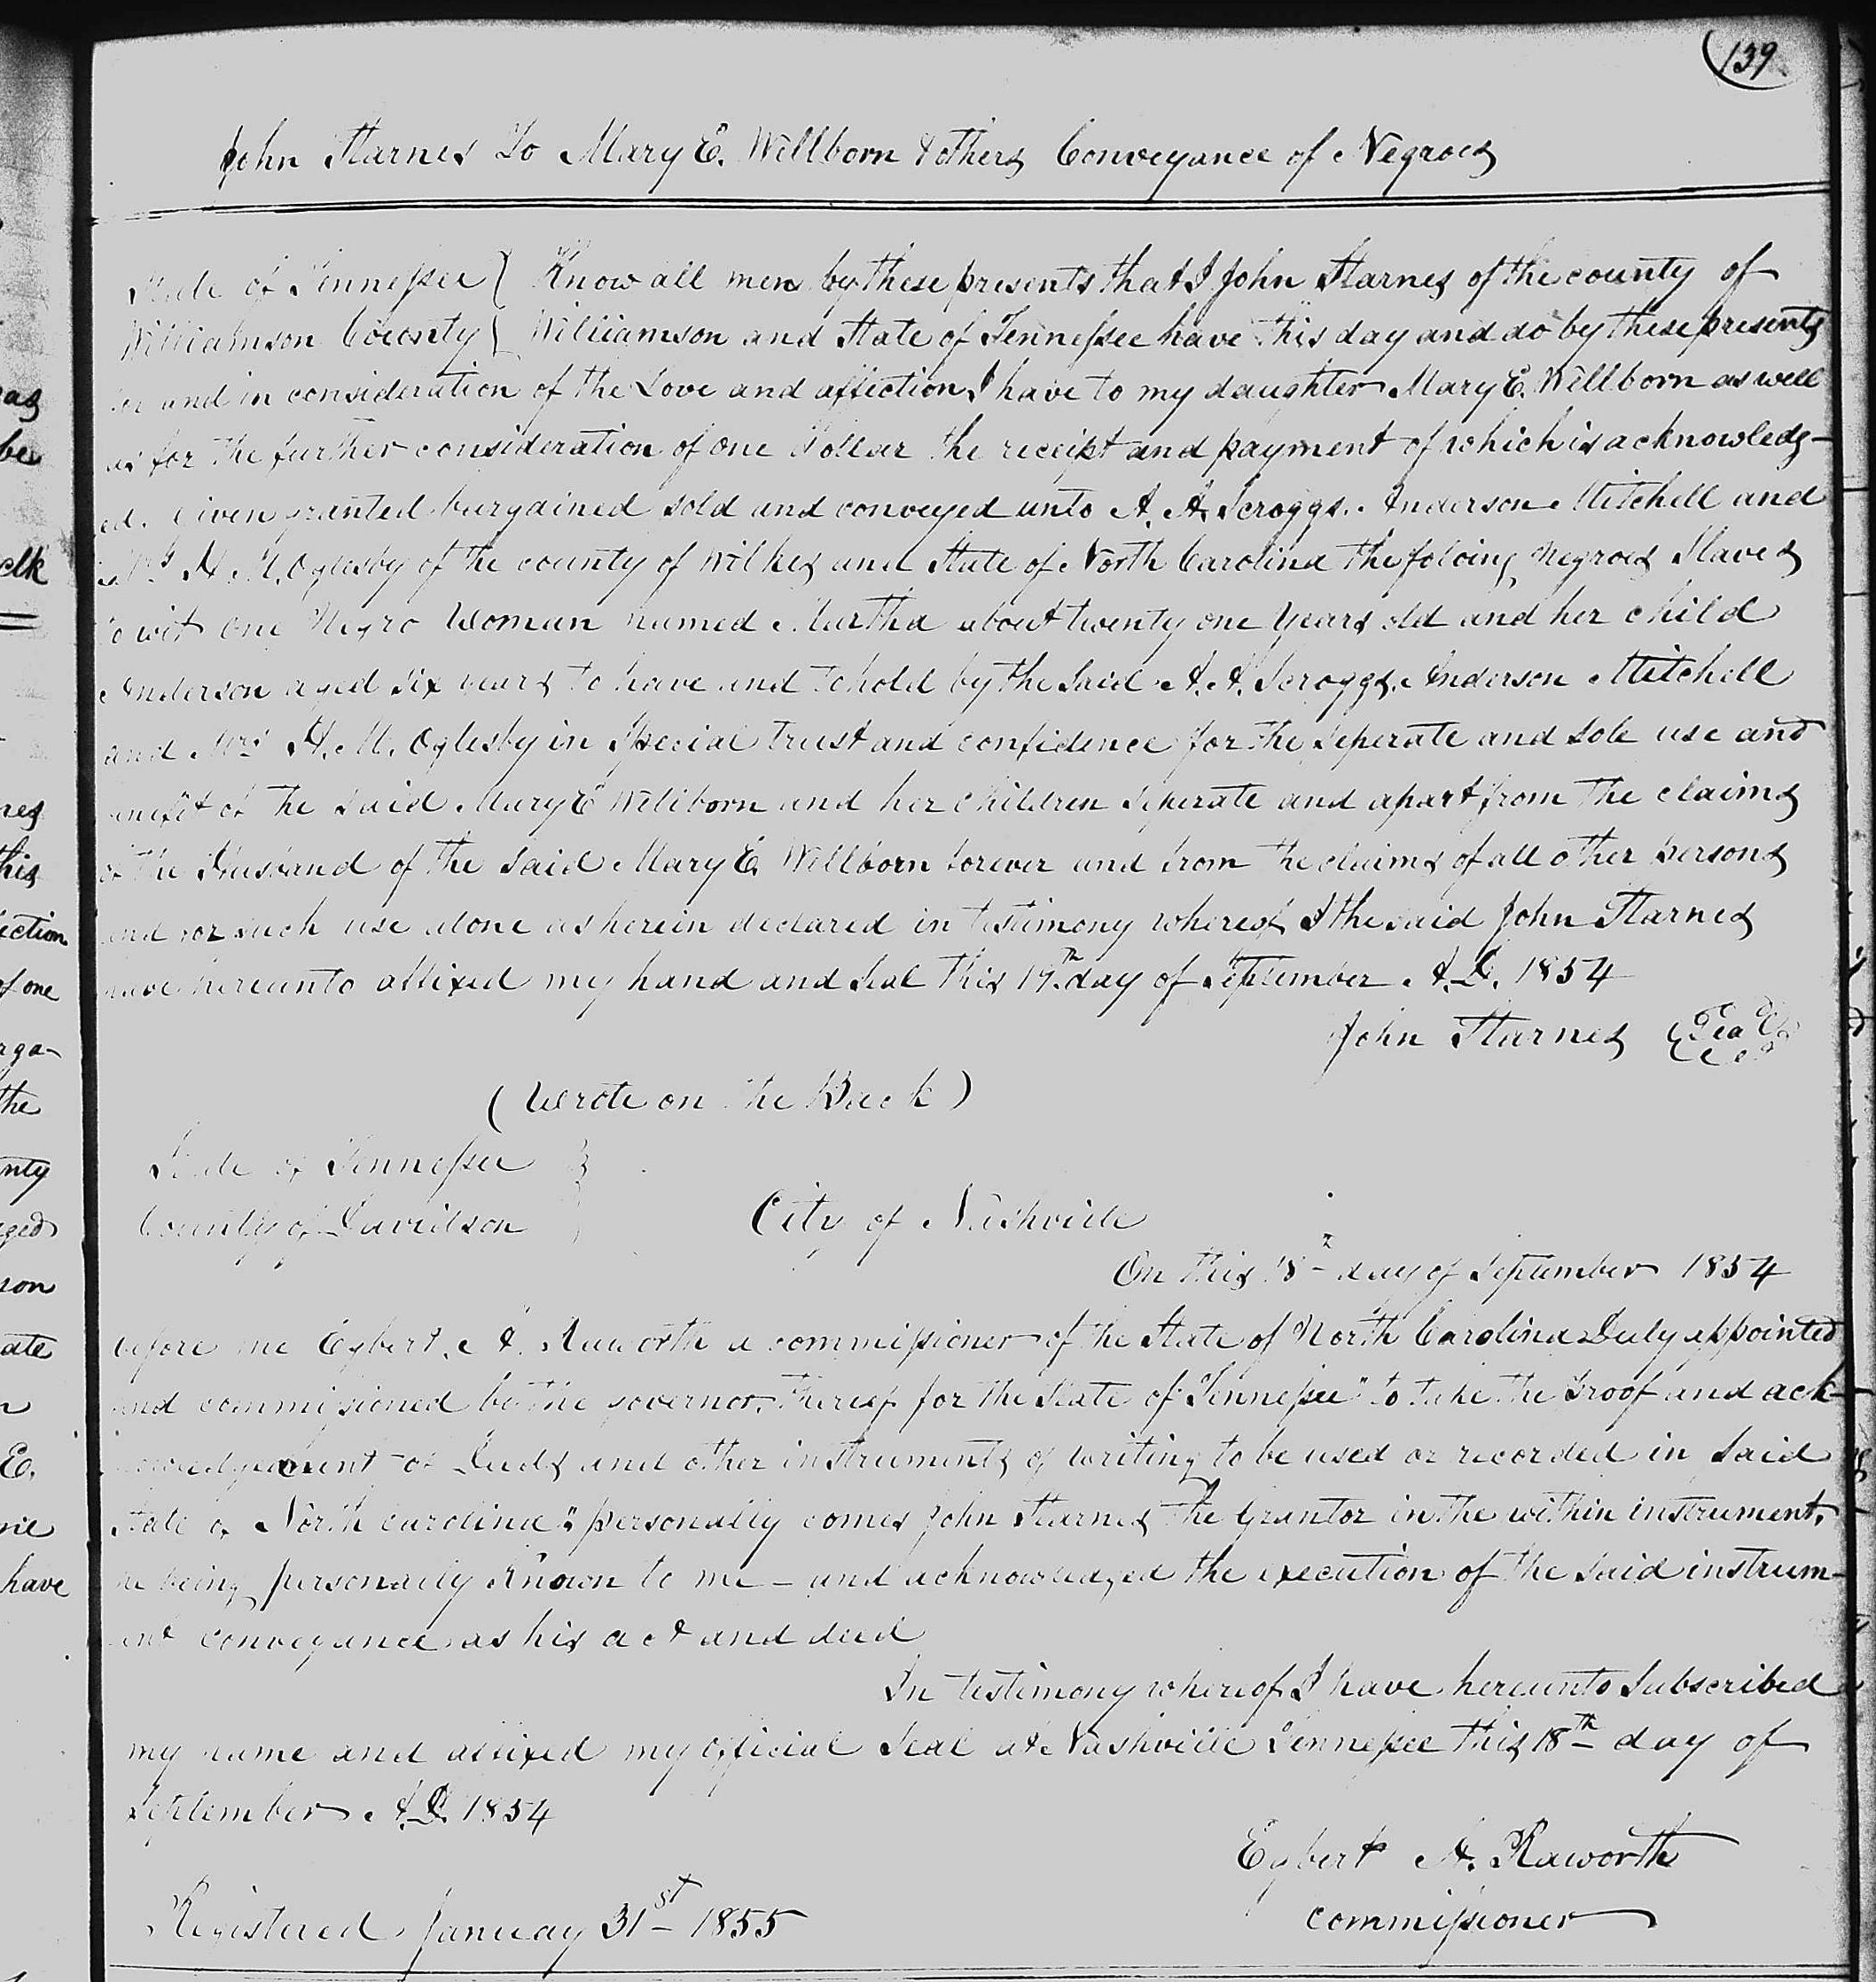 139
John Starnes To Mary E. Willborn & others Conveyance of Negroes
State of Tennessee { Know all men by these presents that I John Starnes of the county of
Williamson County { Williamson and State of Tennessee have this day and do by these presents
for and in consideration of the Love and affection I have to my daughter Mary E. Willborn as well
as for the further consideration of one Dollar the receipt and payment of which is acknowledg-
ed. Given granted bargained sold and conveyed unto A. A. Scroggs. Anderson Mitchell and
Mrs H. M. Oglesby of the county of Wilkes and State of North Carolina the foloing Negroes Slaves
To wit one Negro Woman named Martha about twenty one Years old and her child
Anderson aged six years to have and to hold by the Said A. A. Scroggs. Anderson Mitchell
and Mrs H. M. Oglesby in Special trust and confidence for the seperate and sole use and
benefit of the said Mary E Willborn and her children seperate and apart from the claims
of the Husband of the said Mary E. Willborn forever and from the claims of all other persons
and for such use alone as herein declared in testimony whereof I the said John Starnes
have hereunto affixed my hand and seal this 17th day of September A.D. 1854
John Starnes (Seal)
(Wrote on the Back)
State of Tennessee }
County of Davidson }
City of Nashville
On this 18th day of September 1854
before me Egbert. A. Raworth a commissioner of the State of North Carolina Duly appointed
and commisioned by the governor thereof for the State of Tennessee" to take the Proof and ack-
nowledgement of Deeds and other instruments of writing to be used or recorded in said
State of North carolina" personally comes John Starnes the Grantor in the within instrument,
he being personally known to me - and acknowledged the execution of the said instrum-
ent conveyance as his act and deed
In testimony whereof I have hereunto Subscribed
my name and affixed my official Seal at Nashville Tennessee this 18th day of
September A.D. 1854
Egbert A. Raworth
commissioner
Registered January 31st 1855